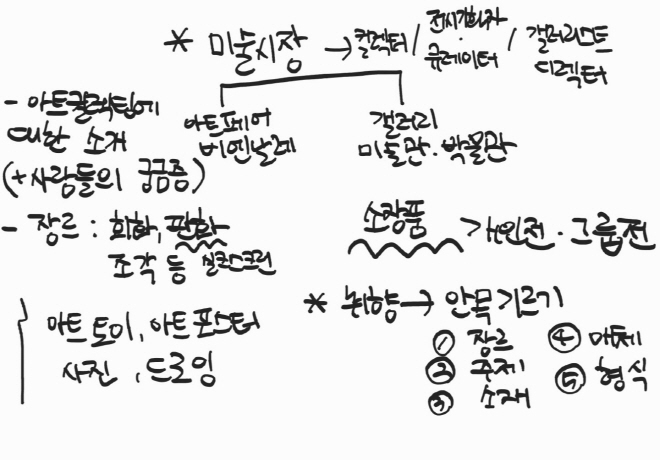 * 미술시장 → 컬렉터 / 전시기획자 · 큐레이터 / 갤러리스트 디렉터
아트페어
비엔날레
갤러리
미술관 · 박물관
- 아트컬렉팅에
대한 소개
(+사람들의 궁금증)
- 장르 : 회화, 판화
조각 등 실크스크린
아트토이, 아트포스터
사진, 드로잉
소장품 > 개인전 · 그룹전
* 취향 → 안목기르기
① 장르
② 주제
③ 소재
④ 매체
⑤ 형식